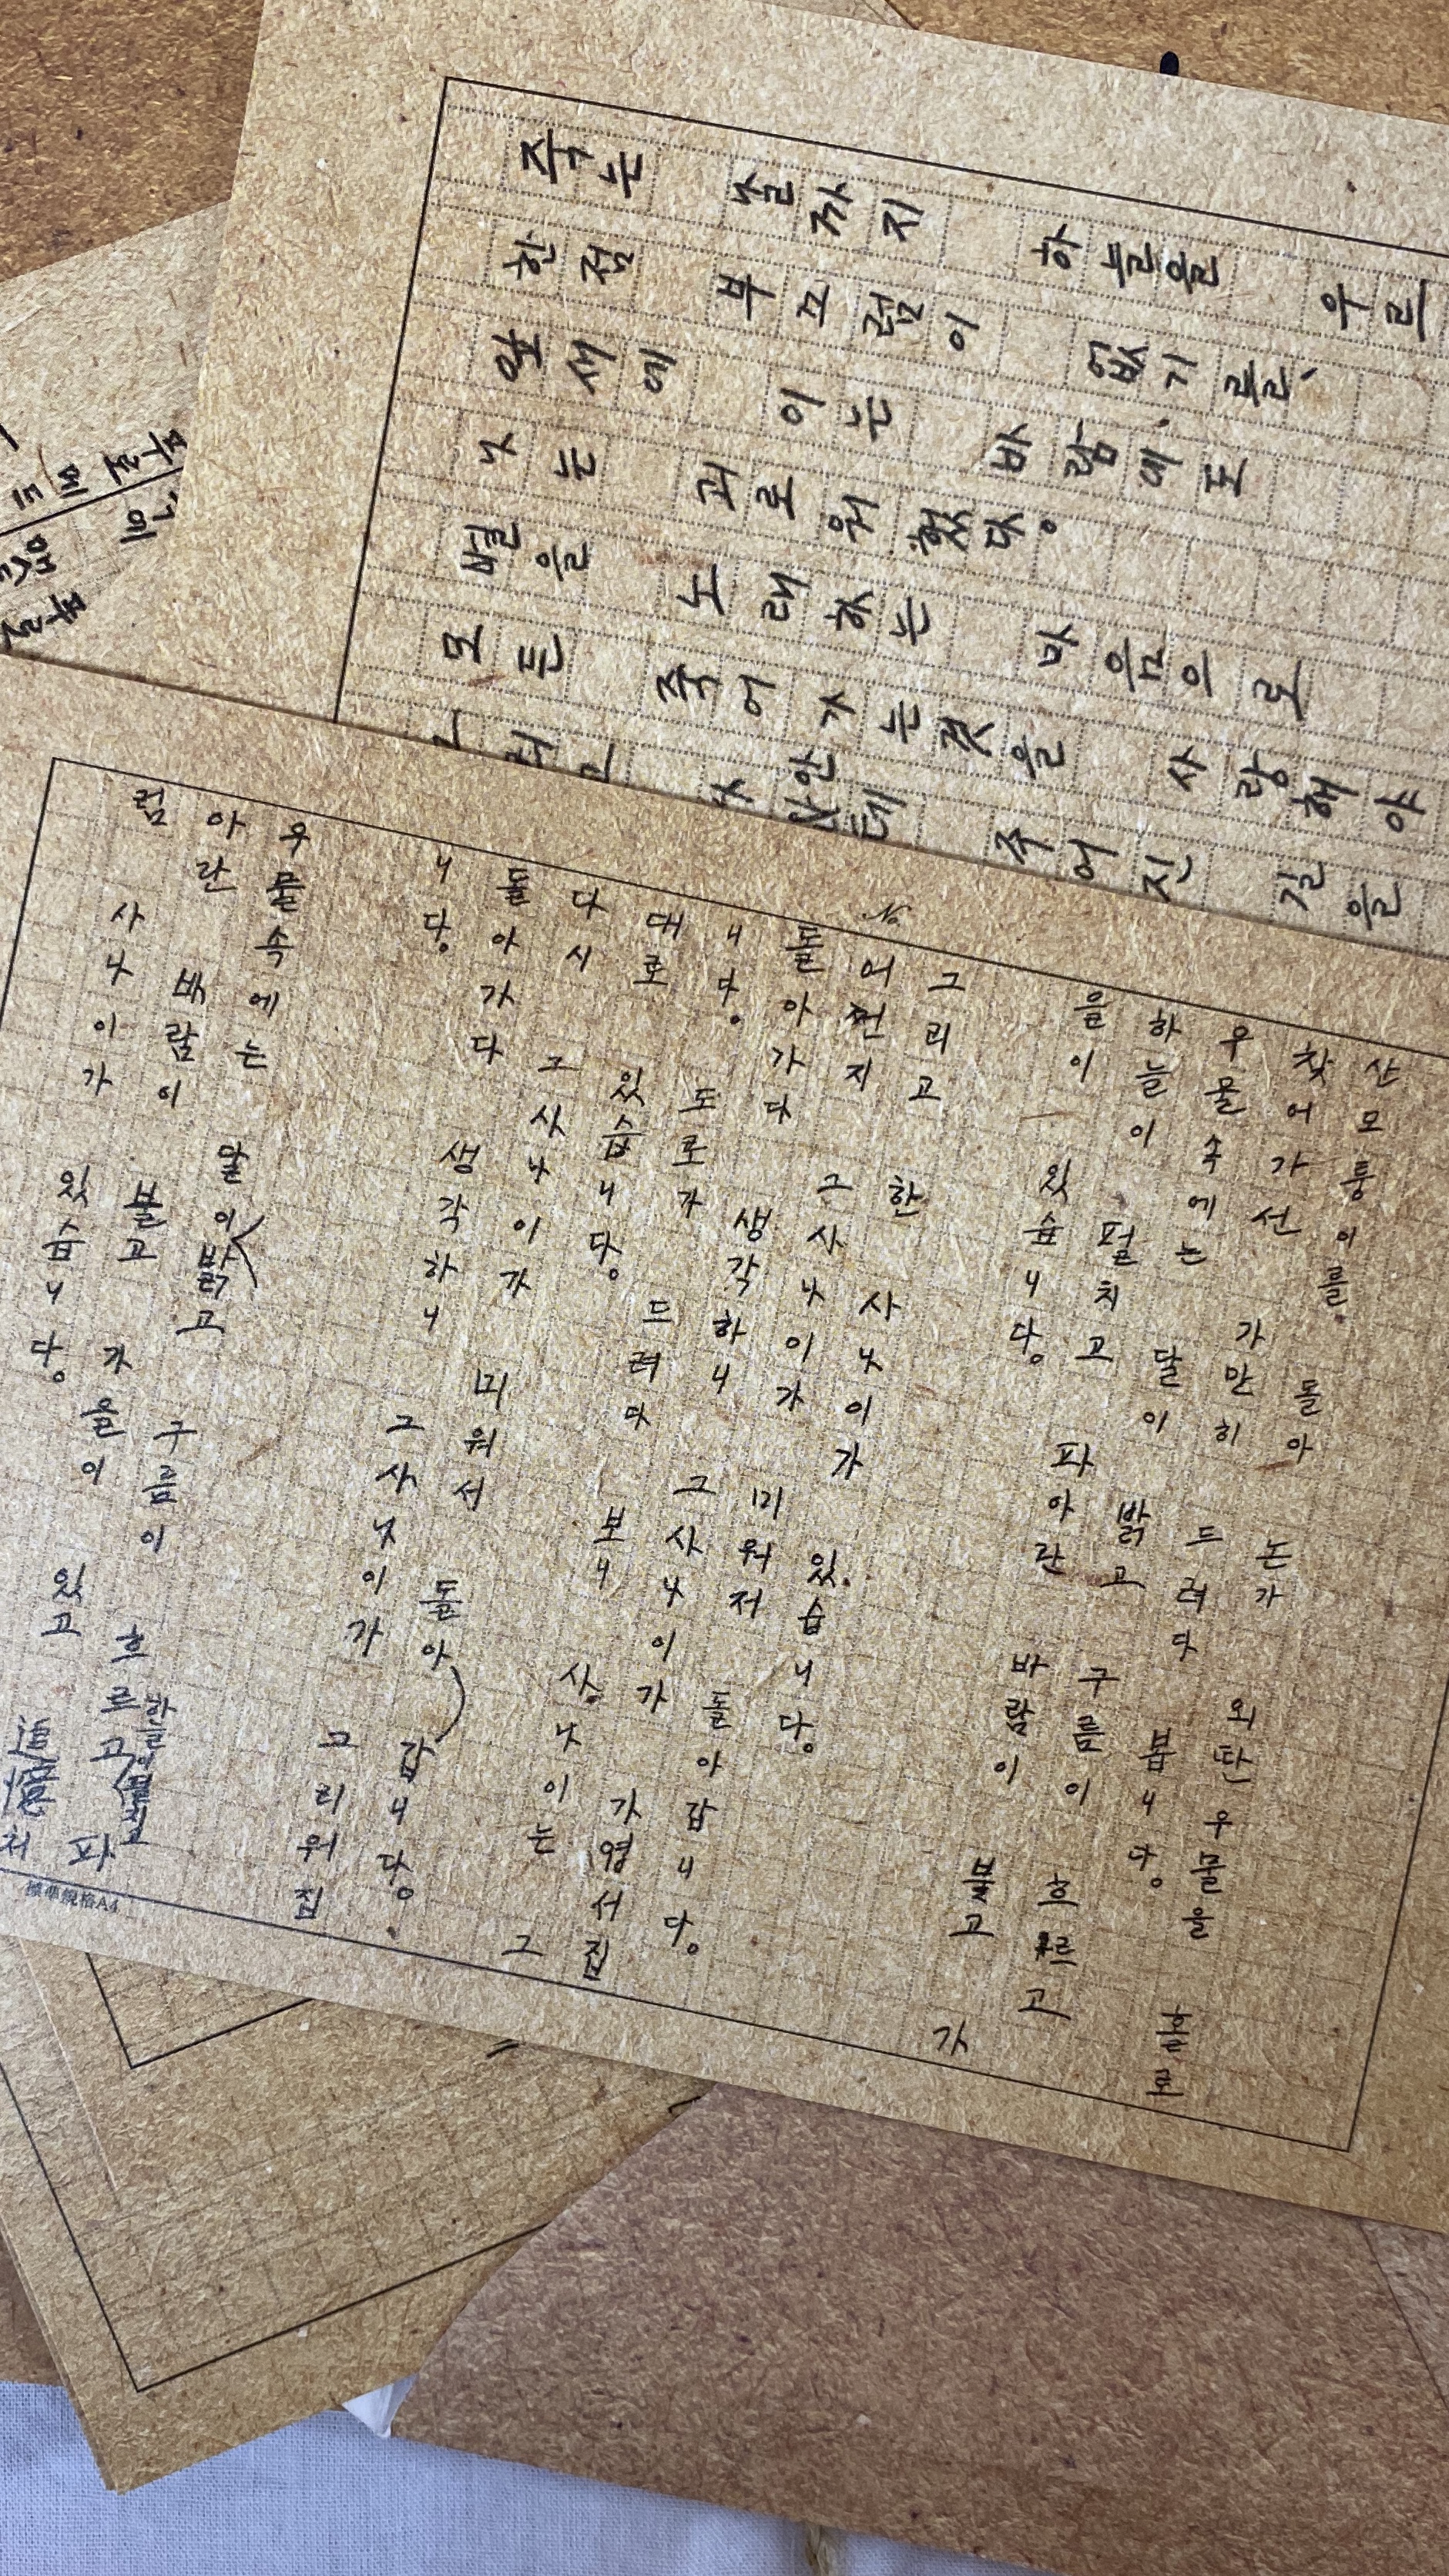 죽는 날까지 하늘을 우르
한점 부끄럼이 없기를、
잎새에 이는 바람에도
나는 괴로워했다。
별을 노래하는 마음으로
모든 죽어가는것을 사랑해야
그리고 나한테 주어진 길을
No.
산모퉁이를 돌아 논가 외딴우물을 홀로
찾어가선 가만히 드려다 봅니다。
우물속에는 달이 밝고 구름이 흐르고
하늘이 펄치고 파아란 바람이 불고 가
을이 있습니다。
그리고 한 사나이가 있습니다。
어쩐지 그사나이가 미워저 돌아갑니다。
돌아가다 생각하니 그사나이가 가엽서집
니다。 도로가 드려다 보니 사나이는 그
대로 있습니다。
다시 그사나이가 미워서 돌아갑니다。
돌아가다 생각하니 그사나이가 그리워집
니다。
우물속에는 달이밝고 구름이 흐르고 하늘이펄치고 파
아란 바람이 불고 가을이 있고 追憶처
럼 사나이가 있습니다。
標準規格A4